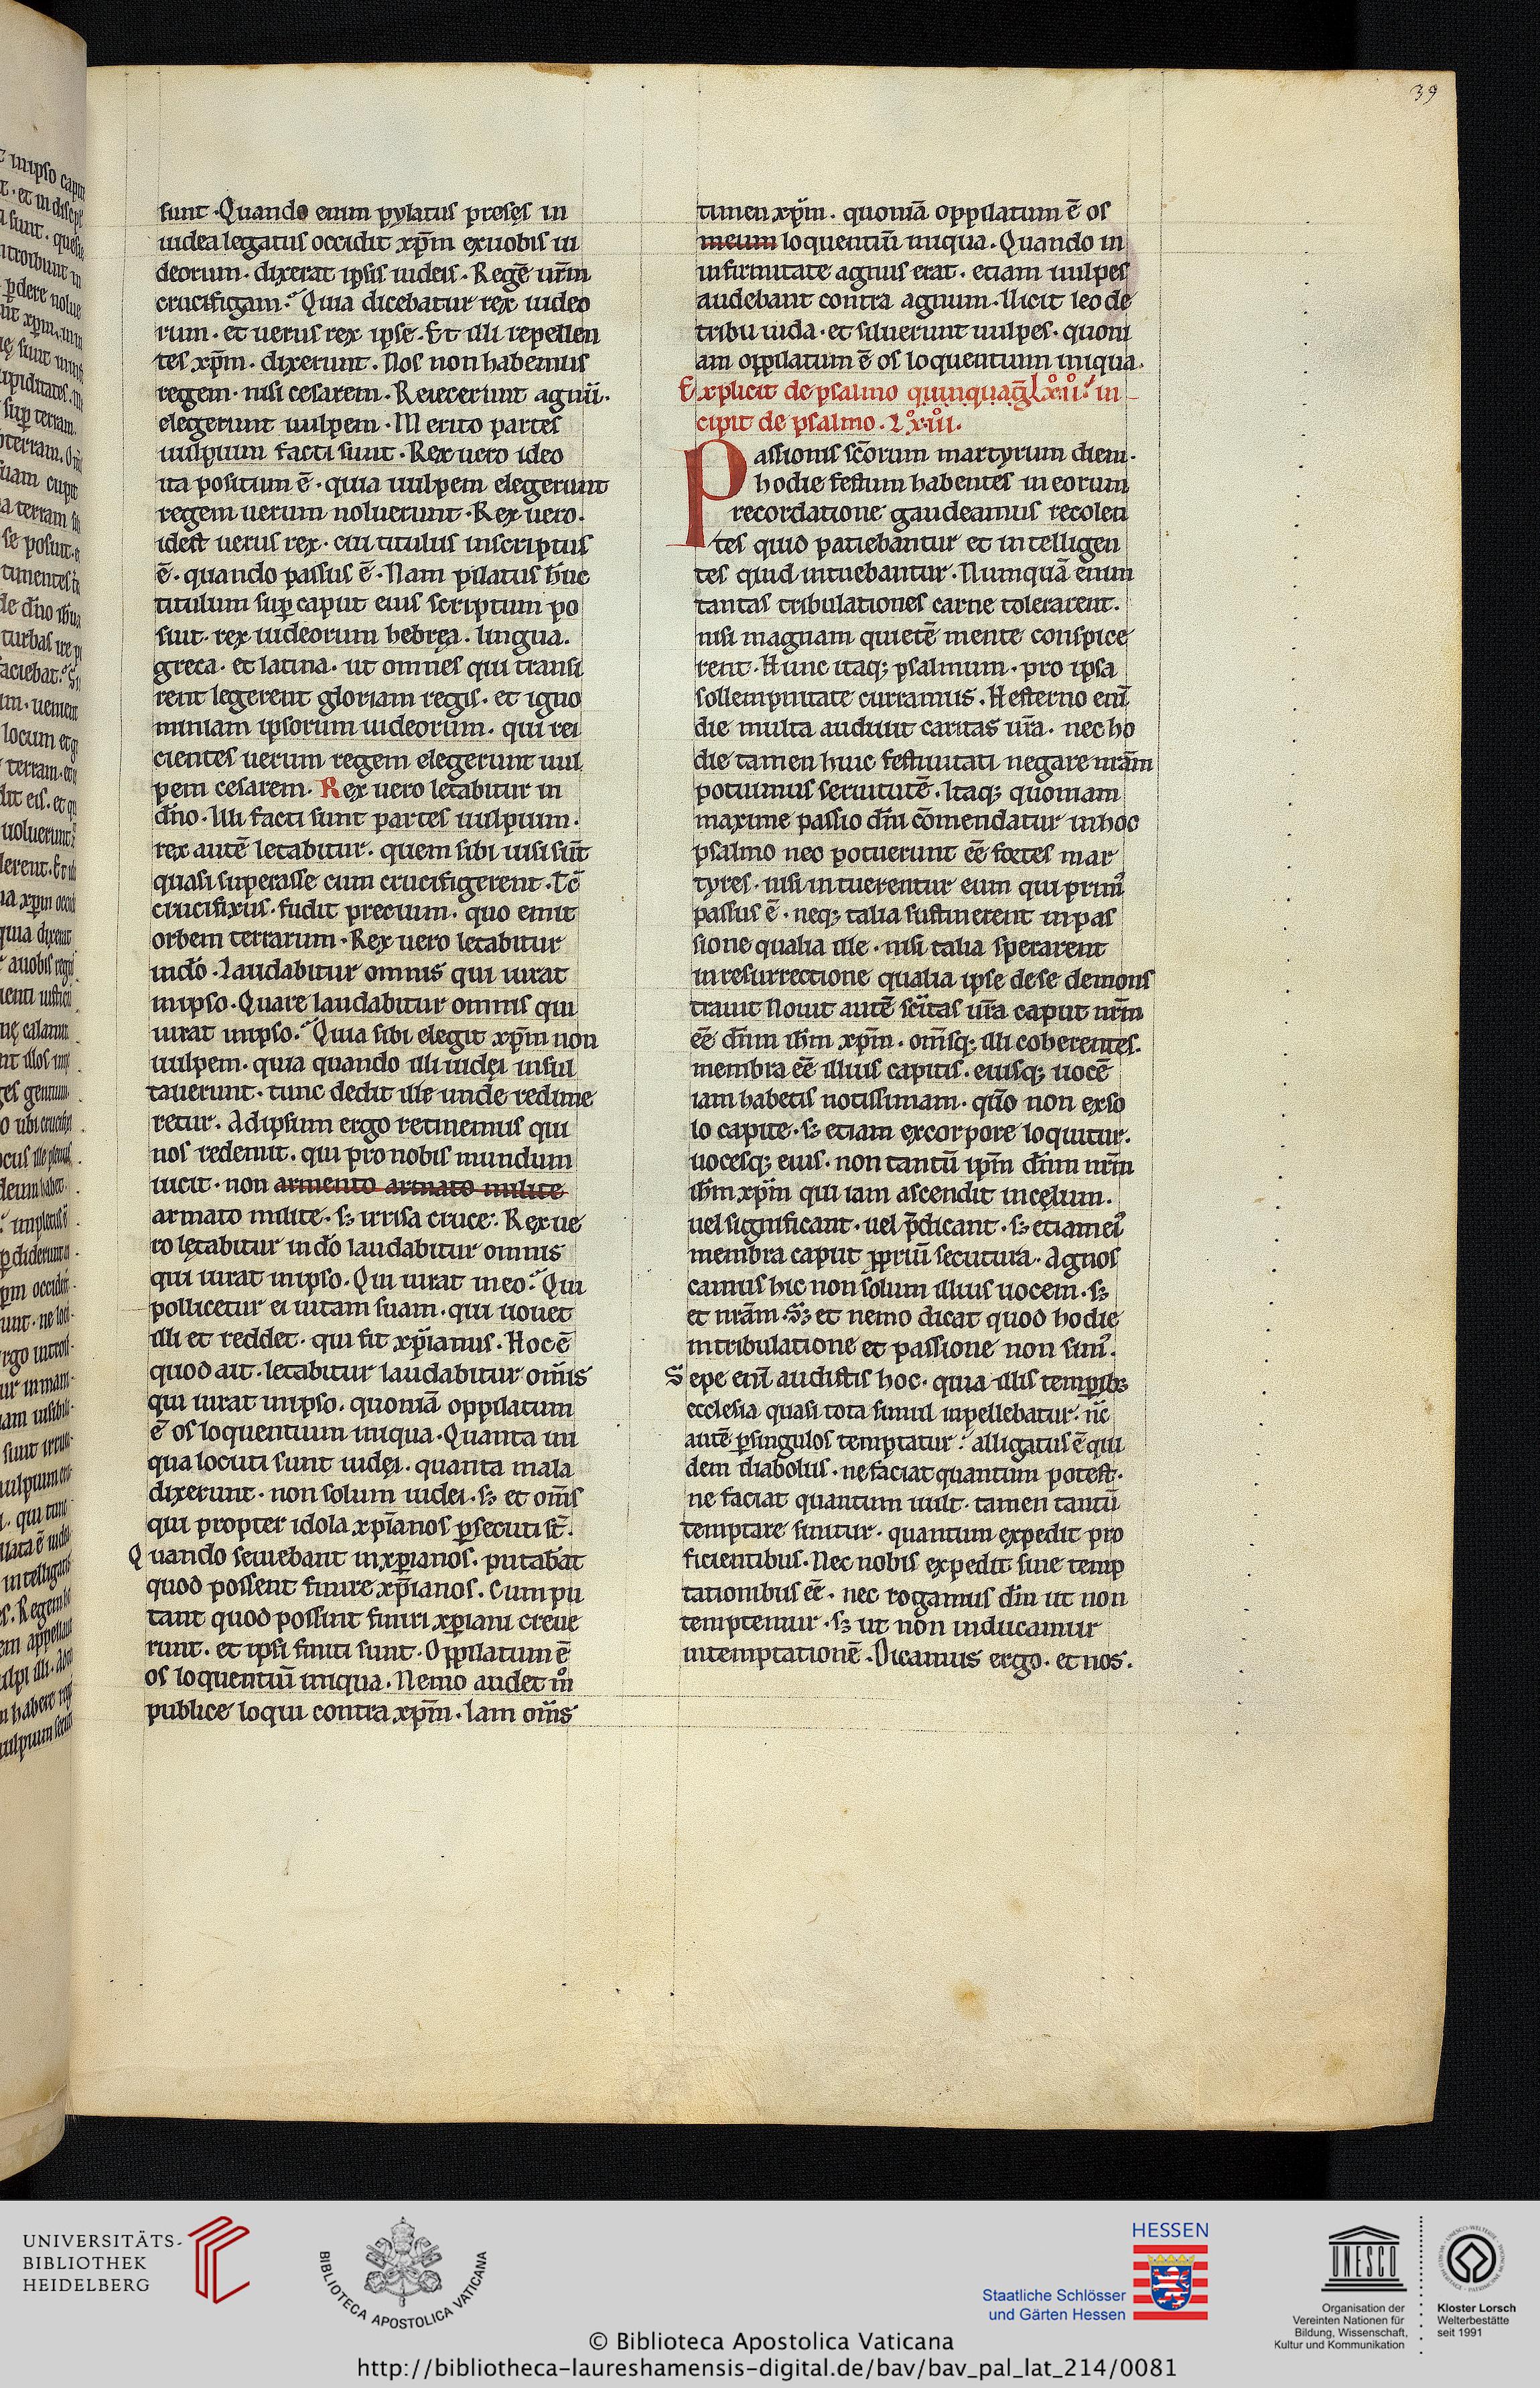 39
sunt · Quando enim pylatus preses in
iudea legatus occidit xp̄m ex uobis iu
deorum · dixerat ipsis iudeis · Regē ur̄m
crucifigam? Quia dicebatur rex iudeo
rum · et uerus rex ipse · Et illi repellen
tes xp̄m · dixerunt · Nos non habemus
regem · nisi cesarem · Reiecerunt agnū·
elegerunt uulpem · Merito partes
uulpium facti sunt · Rex uero ideo
ita positum ē · quia uulpem elegerunt
regem uerum noluerunt · Rex uero·
idest uerus rex · cui titulus inscriptus
ē · quando passus ē · Nam pilatus h̄nc
titulum sup̄ caput eius scriptum po
suit · rex iudeorum hebręa · lingua ·
greca · et latina · ut omnes qui transi
rent legerent gloriam regis · et igno
miniam ipsorum iudeorum · qui rei
cientes uerum regem elegerunt uul
pem cesarem · Rex uero letabitur in
dn̄o · Illi facti sunt partes uulpium ·
rex autē letabitur · quem sibi uisi sūt
quasi superasse cum crucifigerent · Tc̄
crucifixus · fudit precium · quo emit
orbem terrarum · Rex uero letabitur
in dō · Laudabitur omnis qui iurat
in ipso · Quare laudabitur omnis qui
iurat in ipso? Quia sibi elegit xp̄m non
uulpem · quia quando illi iudęi insul
tauerunt · tunc dedit ille unde redime
retur · Ad ipsum ergo retinemus qui
nos redemit · qui pro nobis mundum
uicit · non armento armato milite
armato milite · sꝫ irrisa cruce · Rex ue
ro lętabitur in dō laudabitur omnis
qui iurat in ipso · Qui iurat in eo? Qui
pollicetur ei uitam suam · qui uouet
illi et reddet · qui fit xp̄ianus · Hoc ē
quod ait · letabitur laudabitur om̄is
qui iurat in ipso · quoniā oppilatum
ē os loquentium iniqua · Quanta ini
qua locuti sunt iudęi · quanta mala
dixerunt · non solum iudei · sꝫ et om̄s
qui propter idola xp̄ianos ꝑsecuti st̄ ·
Quando seuiebant in xp̄ianos · putab̄at
quod possent finire xp̄ianos · Cum pu
tant quod possint finiri xp̄iani creue
runt · et ipsi finiti sunt · Oppilatum ē
os loquentiū iniqua · Nemo audet m̊
publice loqui contra xp̄m · Iam om̄s
timen xp̄m · quoniā oppilatum ē os
meum loquentiū iniqua · Quando in
infirmitate agnus erat · etiam uulpes
audebant contra agnum · Uicit leo de
tribu iuda · et siluerunt uulpes · quoni
am oppilatum ē os loquentium iniqua ·
Explicit de psalmo quinquaḡ Lxͦiiͦ · in
cipit de psalmo · Lxͦiiiͦ ·
Passionis sc̄orum martyrum diem ·
hodie festum habentes in eorum
recordatione gaudeamus recolen
tes quid patiebantur et intelligen
tes quid intuebantur · Numquā enim
tantas tribulationes carne tolerarent ·
nisi magnam quietē mente conspice
rent · Hunc itaqꝫ psalmum · pro ipsa
sollempnitate curramus · Hesterno enī
die multa audiuit caritas ur̄a · nec ho
die tamen huic festiuitati negare nr̄am
potuimus seruitutē · Itaqꝫ quoniam
maxime passio dn̄i cōmendatur in hoc
psalmo nec potuerunt eē fortes mar
tyres · nisi intuerentur eum qui prim᷒
passus ē · neqꝫ talia sustinerent in pas
sione qualia ille · nisi talia sperarent
in resurrectione qualia ipse de se demons
trauit Nouit autē sc̄itas ur̄a caput nr̄m
eē dn̄m ih̄m xp̄m · om̄sqꝫ illi coherentes ·
membra eē illius capitis · eiusqꝫ uocē
iam habetis notissimam · qn̄o non ex so
lo capite · sꝫ etiam ex corpore loquitur ·
uocesqꝫ eius · non tantū ip̄m dn̄m nr̄m
ih̄m xp̄m qui iam ascendit in cęlum ·
uel significant · uel p̄dicant · sꝫ etiam ei᷒
membra caput ꝓpriū secutura · Agnos
camus hic non solum illius uocem · sꝫ
et nr̄am · Sꝫ et nemo dicat quod hodie
in tribulatione et passione non sim᷒ ·
Sepe enī audistis hoc · quia illis temporibꝫ
ecclesia quasi tota simul inpellebatur · nc̄
autē ꝑ singulos temptatur? alligatus ē qui
dem diabolus · ne faciat quantum potest ·
ne faciat quantum uult · tamen tantū
temptare sinitur · quantum expedit pro
ficientibus · Nec nobis expedit sine temp
tationibus eē · nec rogamus dm̄ ut non
temptemur · sꝫ ut non inducamur
in temptationē · Dicamus ergo · et nos ·
UNIVERSITÄTS-
BIBLIOTHEK
HEIDELBERG
BIBLIOTECA APOSTOLICA VATICANA
HESSEN
Staatliche Schlösser
und Gärten Hessen
UNESCO
Organisation der
Vereinten Nationen für
Bildung, Wissenschaft,
Kultur und Kommunikation
Kloster Lorsch
Welterbestätte
seit 1991
© Biblioteca Apostolica Vaticana
http://bibliotheca-laureshamensis-digital.de/bav/bav_pal_lat_214/0081